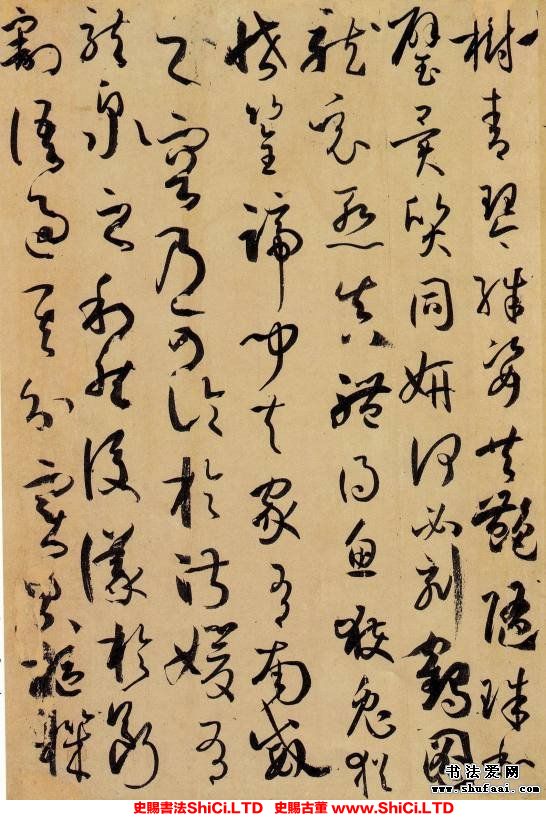 樹青琴殊姿共艶隨珠和
璧異質同妍何必刻鶴圖
龍竟慙真體得魚獲兔猶
恡筌蹄聞夫家有南威
之容乃可論於淑媛有
龍泉之利然後議於斷
割語過其分實累樞機
书法爱网
www.shufaai.com
史賜書法ShiCi.LTD 史賜古董 www.ShiCi.LTD